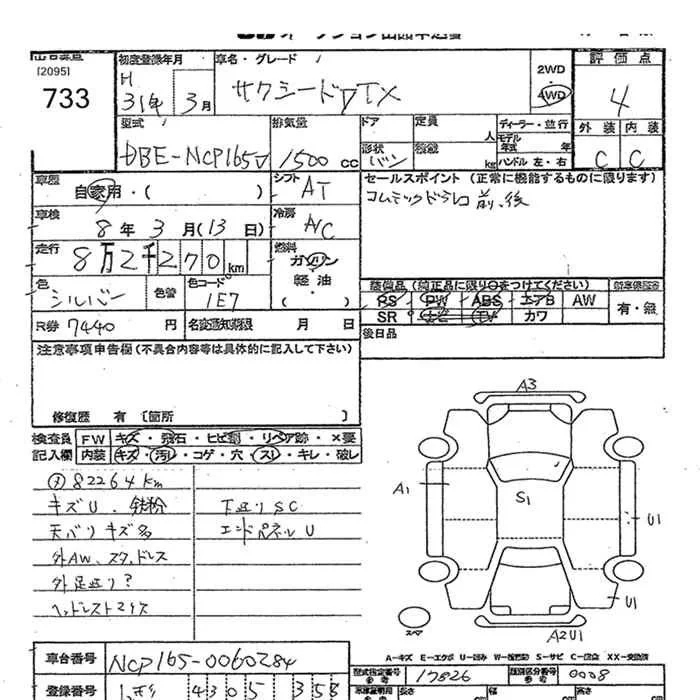 [2095]
733
初度登録年月
H
31年 3月
車名・グレード
サクシード TX
2WD
4WD
評価点
4
外装 内装
C C
型式
DBE-NCP165V
排気量
1500 cc
ドア
形状
バン
定員
人
積載
kg
ディーラー・並行
モデル年式 年
ハンドル 左・右
車歴
自家用・( )
シフト
AT
セールスポイント (正常に機能するものに限ります)
コムテックドラレコ 前、後
車検
8年 3月(13日)
冷房
A/C
走行
8万2千270km
燃料
ガソリン
軽油
( )
色
シルバー
色替
色コード
1E7
装備品(純正品に限り○をつけてください)
PS PW ABS エアB AW
SR ナビ TV カワ
新車保証書
有・無
R券 7440 円
名変通知期限 月 日
後日品
注意事項申告欄(不具合内容等は具体的に記入して下さい)
修復歴 有 〔箇所 〕
検査員記入欄
FW キズ・飛石・ヒビ割・リペア跡・×要
内装 キズ・汚レ・コゲ・穴・スレ・キレ・破レ
82264km
キズU、鉄粉
天バリキズ多
外AW、スタッドレス
外足廻り?
ヘッドレスト2ケ欠
下廻りSC
エンドパネルU
A3
A1
S1
U1
U1
A2U1
スペア
A-キズ E-エクボ U-凹み W-補修跡 S-サビ C-腐食 XX-交換済
車台番号
NCP165-0060284
型式指定番号
17826
類別区分番号
0008
登録番号
4305 358
長さ
幅
高さ